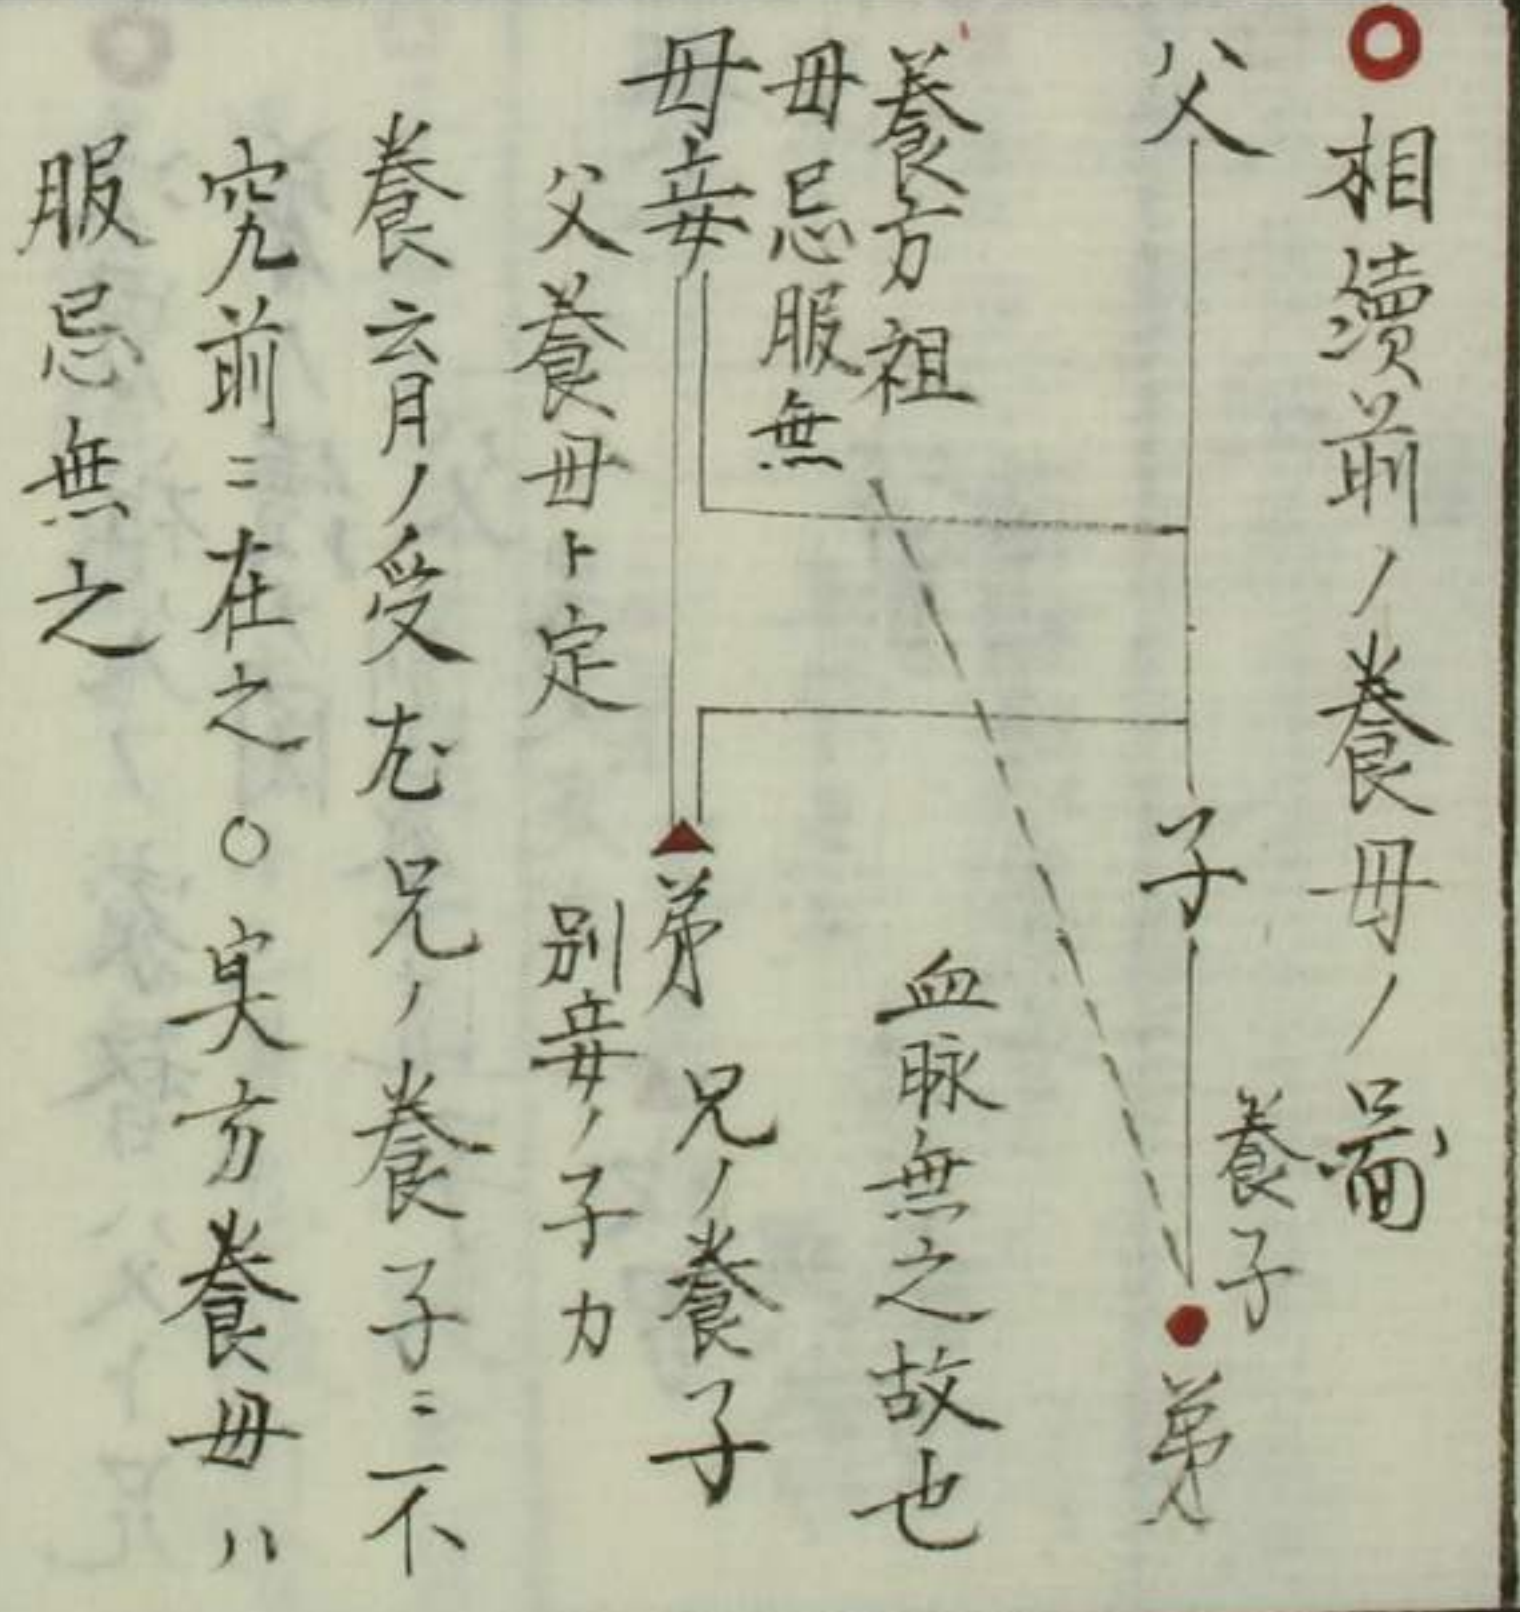 相續前ノ養母ノ圖
父
子
養子
弟
養方祖
母忌服無
血脉無之故也
母妾
弟
兄ノ養子
父養母ト定
別妾ノ子カ
養云月ノ受 兄ノ養子ニ不
究前ニ在之○実方養母ハ
服忌無之